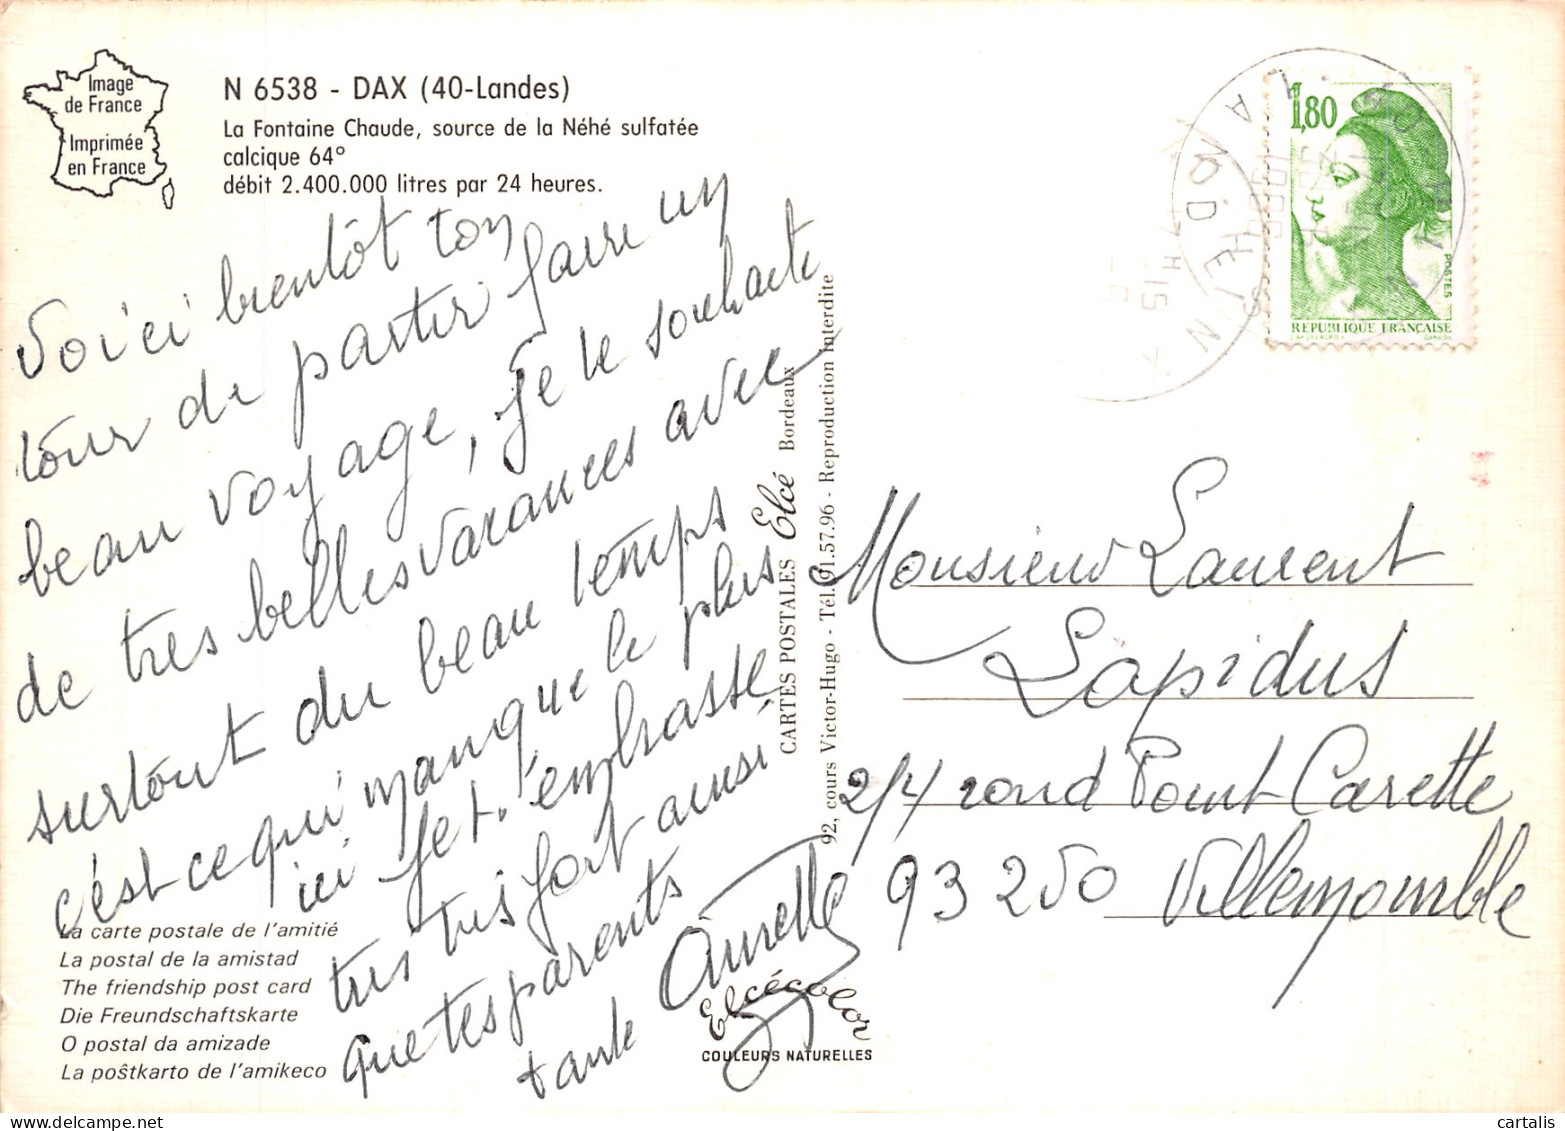 Image
de France
Imprimée
en France
N 6538 - DAX (40-Landes)
La Fontaine Chaude, source de la Néhé sulfatée
calcique 64°
débit 2.400.000 litres par 24 heures.
Voici bientôt ton
tour de partir faire un
beau voyage, je te souhaite
de très belles vacances avec
surtout du beau temps
c'est ce qui manque le plus
ici je t'embrasse
très très fort ainsi
que tes parents
tante Ginette
La carte postale de l'amitié
La postal de la amistad
The friendship post card
Die Freundschaftskarte
O postal da amizade
La poŝtkarto de l'amikeco
CARTES POSTALES Elcé Bordeaux
92, cours Victor-Hugo - Tél. 91.57.96 - Reproduction interdite
Elcécolor
COULEURS NATURELLES
1,80
POSTES
REPUBLIQUE FRANÇAISE
GANDON
Monsieur Laurent
Lapidus
2/4 rond Point Carette
93250 Villemomble
cartalis